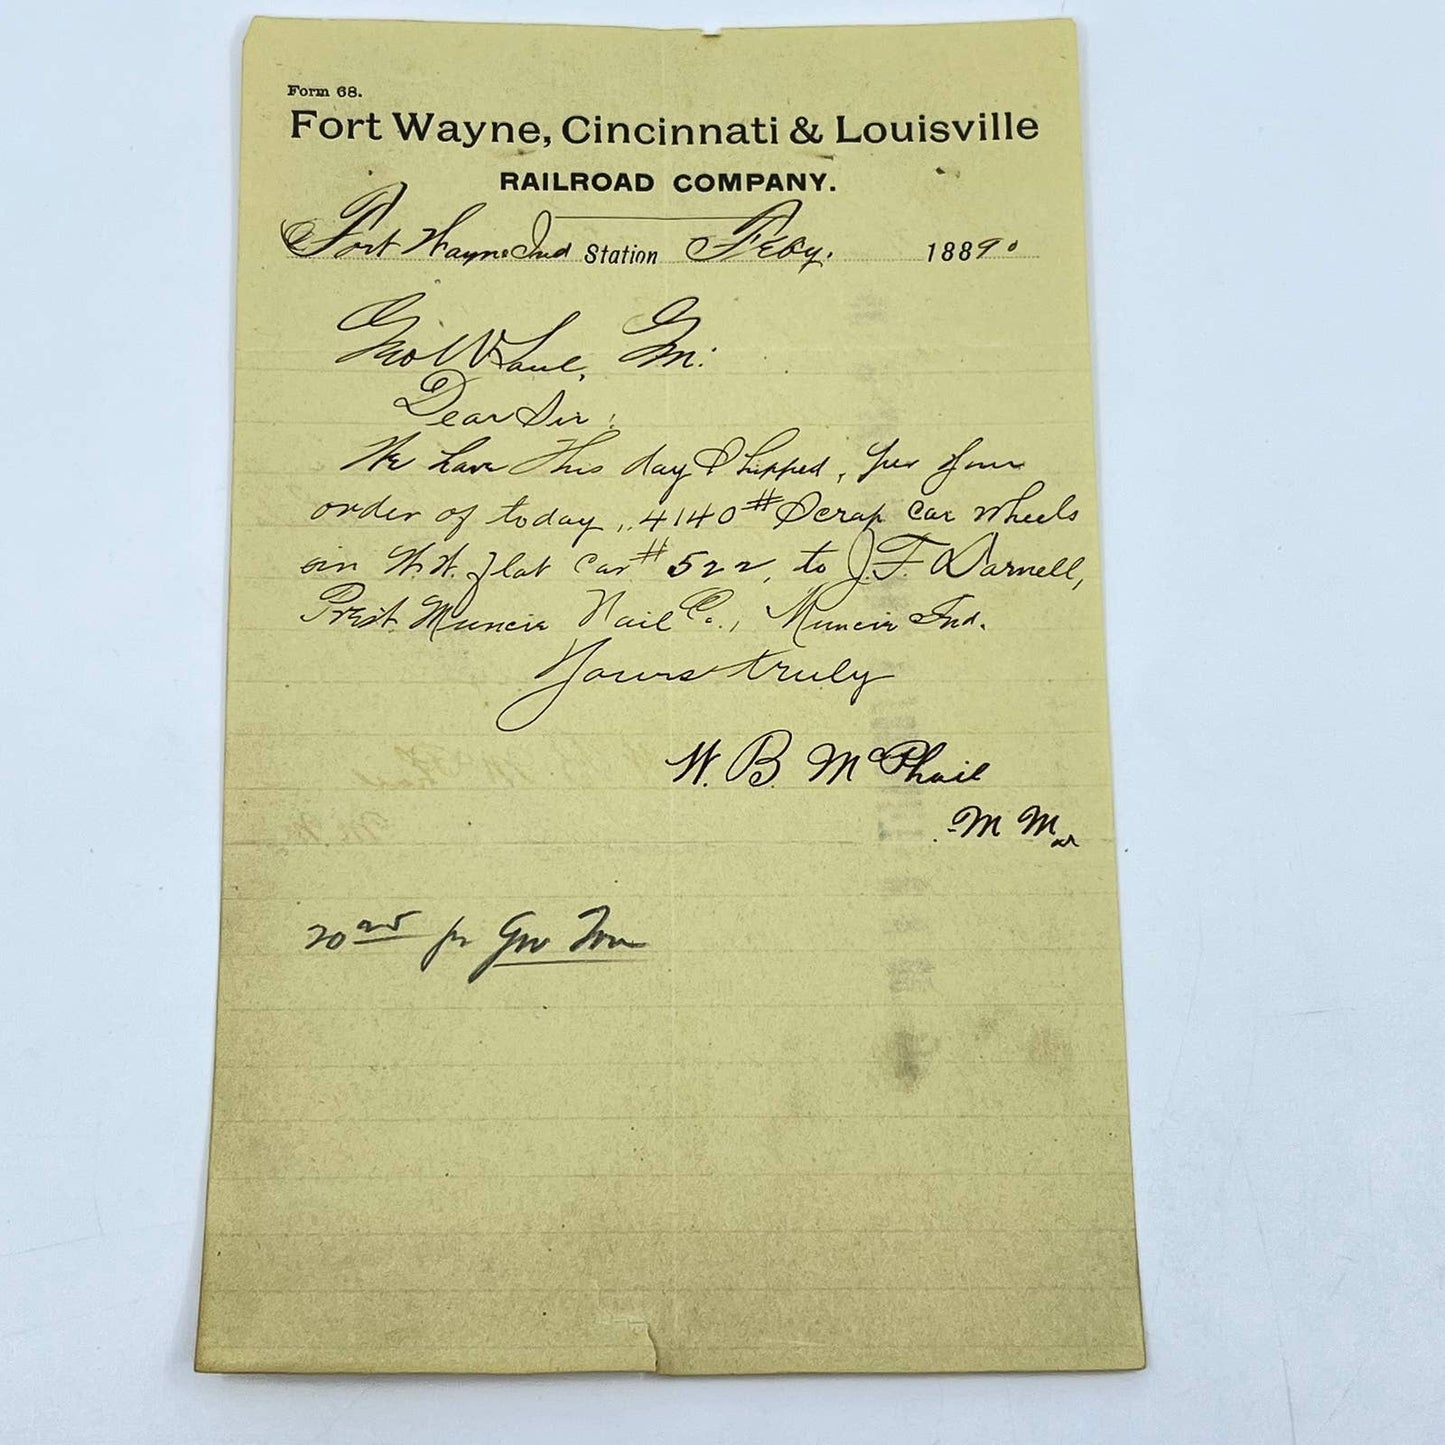 Form 68.
Fort Wayne, Cincinnati & Louisville
RAILROAD COMPANY.
Fort Wayne Ind Station Feby. 1889.
Geo W. Gm:
Dear Sir:
We have this day Shipped, per your
order of today, 4140# Scrap Car Wheels
in Flat Car # 522, to J. F. Darnell,
Prest. Muncie Nail Co., Muncie Ind.
Yours truly
W. B. McPhail
M M
20 25 pr Ton